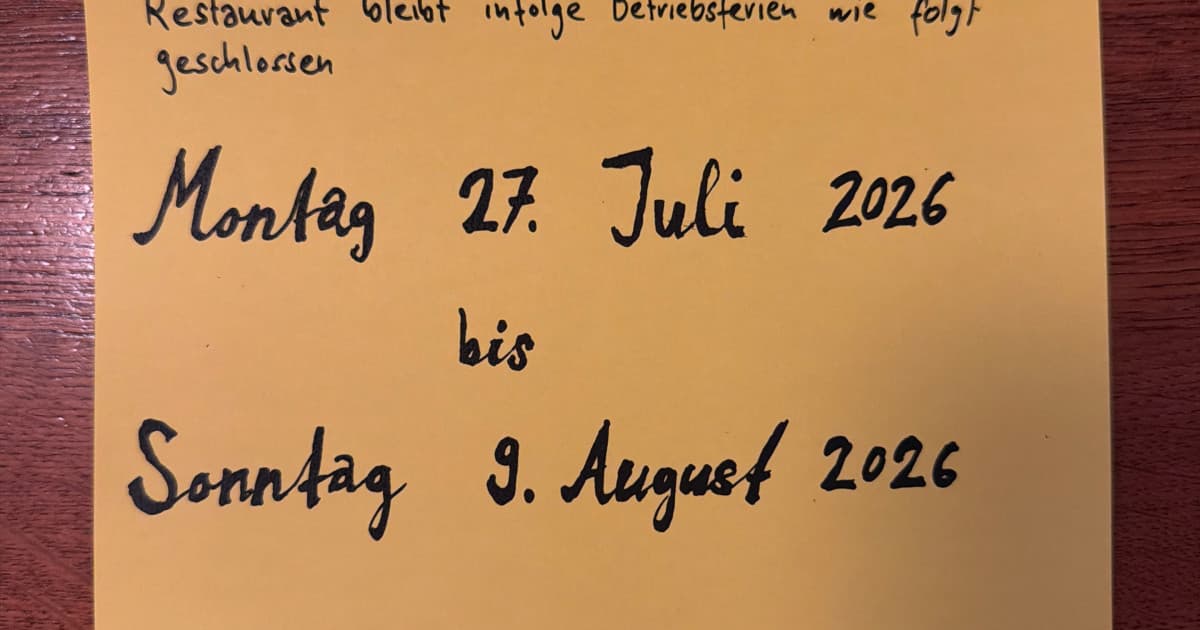 Restaurant bleibt infolge Betriebsferien wie folgt
geschlossen
Montag 27. Juli 2026
bis
Sonntag 9. August 2026